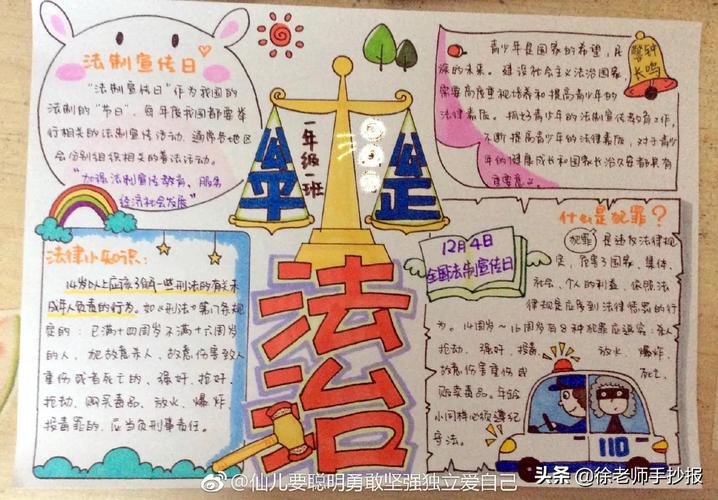 法制宣传日
“法制宣传日”作为我国的
法制的“节日”,每年度我国都要举
行相关的法制宣传活动。通常各地区
会分别组织相关的普法活动。
“加强法制宣传教育、服务
经济社会发展”
一年级一班
公平
公正
法治
警钟
长鸣
青少年是国家的希望,民
族的未来。建设社会主义法治国家,
需要高度重视培养和提高青少年的
法律素质。抓好青少年的法制宣传教育工作,
不断提高青少年的法律素质,对于青少
年的健康成长和国家长治久安都具有
重要意义。
法律小知识:
14岁以上应该了解一些刑法的有关未
成年人负责的行为。如《刑法》第17条规
定的:已满十四周岁不满十六周岁
的人,犯故意杀人、故意伤害致人
重伤或者死亡的、强奸、抢奸、
抢劫、购买毒品、放火、爆炸
投毒罪的,应当负刑事责任。
12月4日
全国法制宣传日
什么是犯罪?
犯罪是违反法律规
定,危害了国家、集体、
社会、个人的利益,依照法
律规定应受到法律惩罚的行
为。14周岁~16周岁有8种犯罪应追究:杀人
抢劫、强奸、投毒、放火、爆炸、
故意伤害重伤或死亡、
贩卖毒品。年龄
小同样必须遵纪
守法。
110
@仙儿要聪明勇敢坚强独立爱自己
头条 @徐老师手抄报